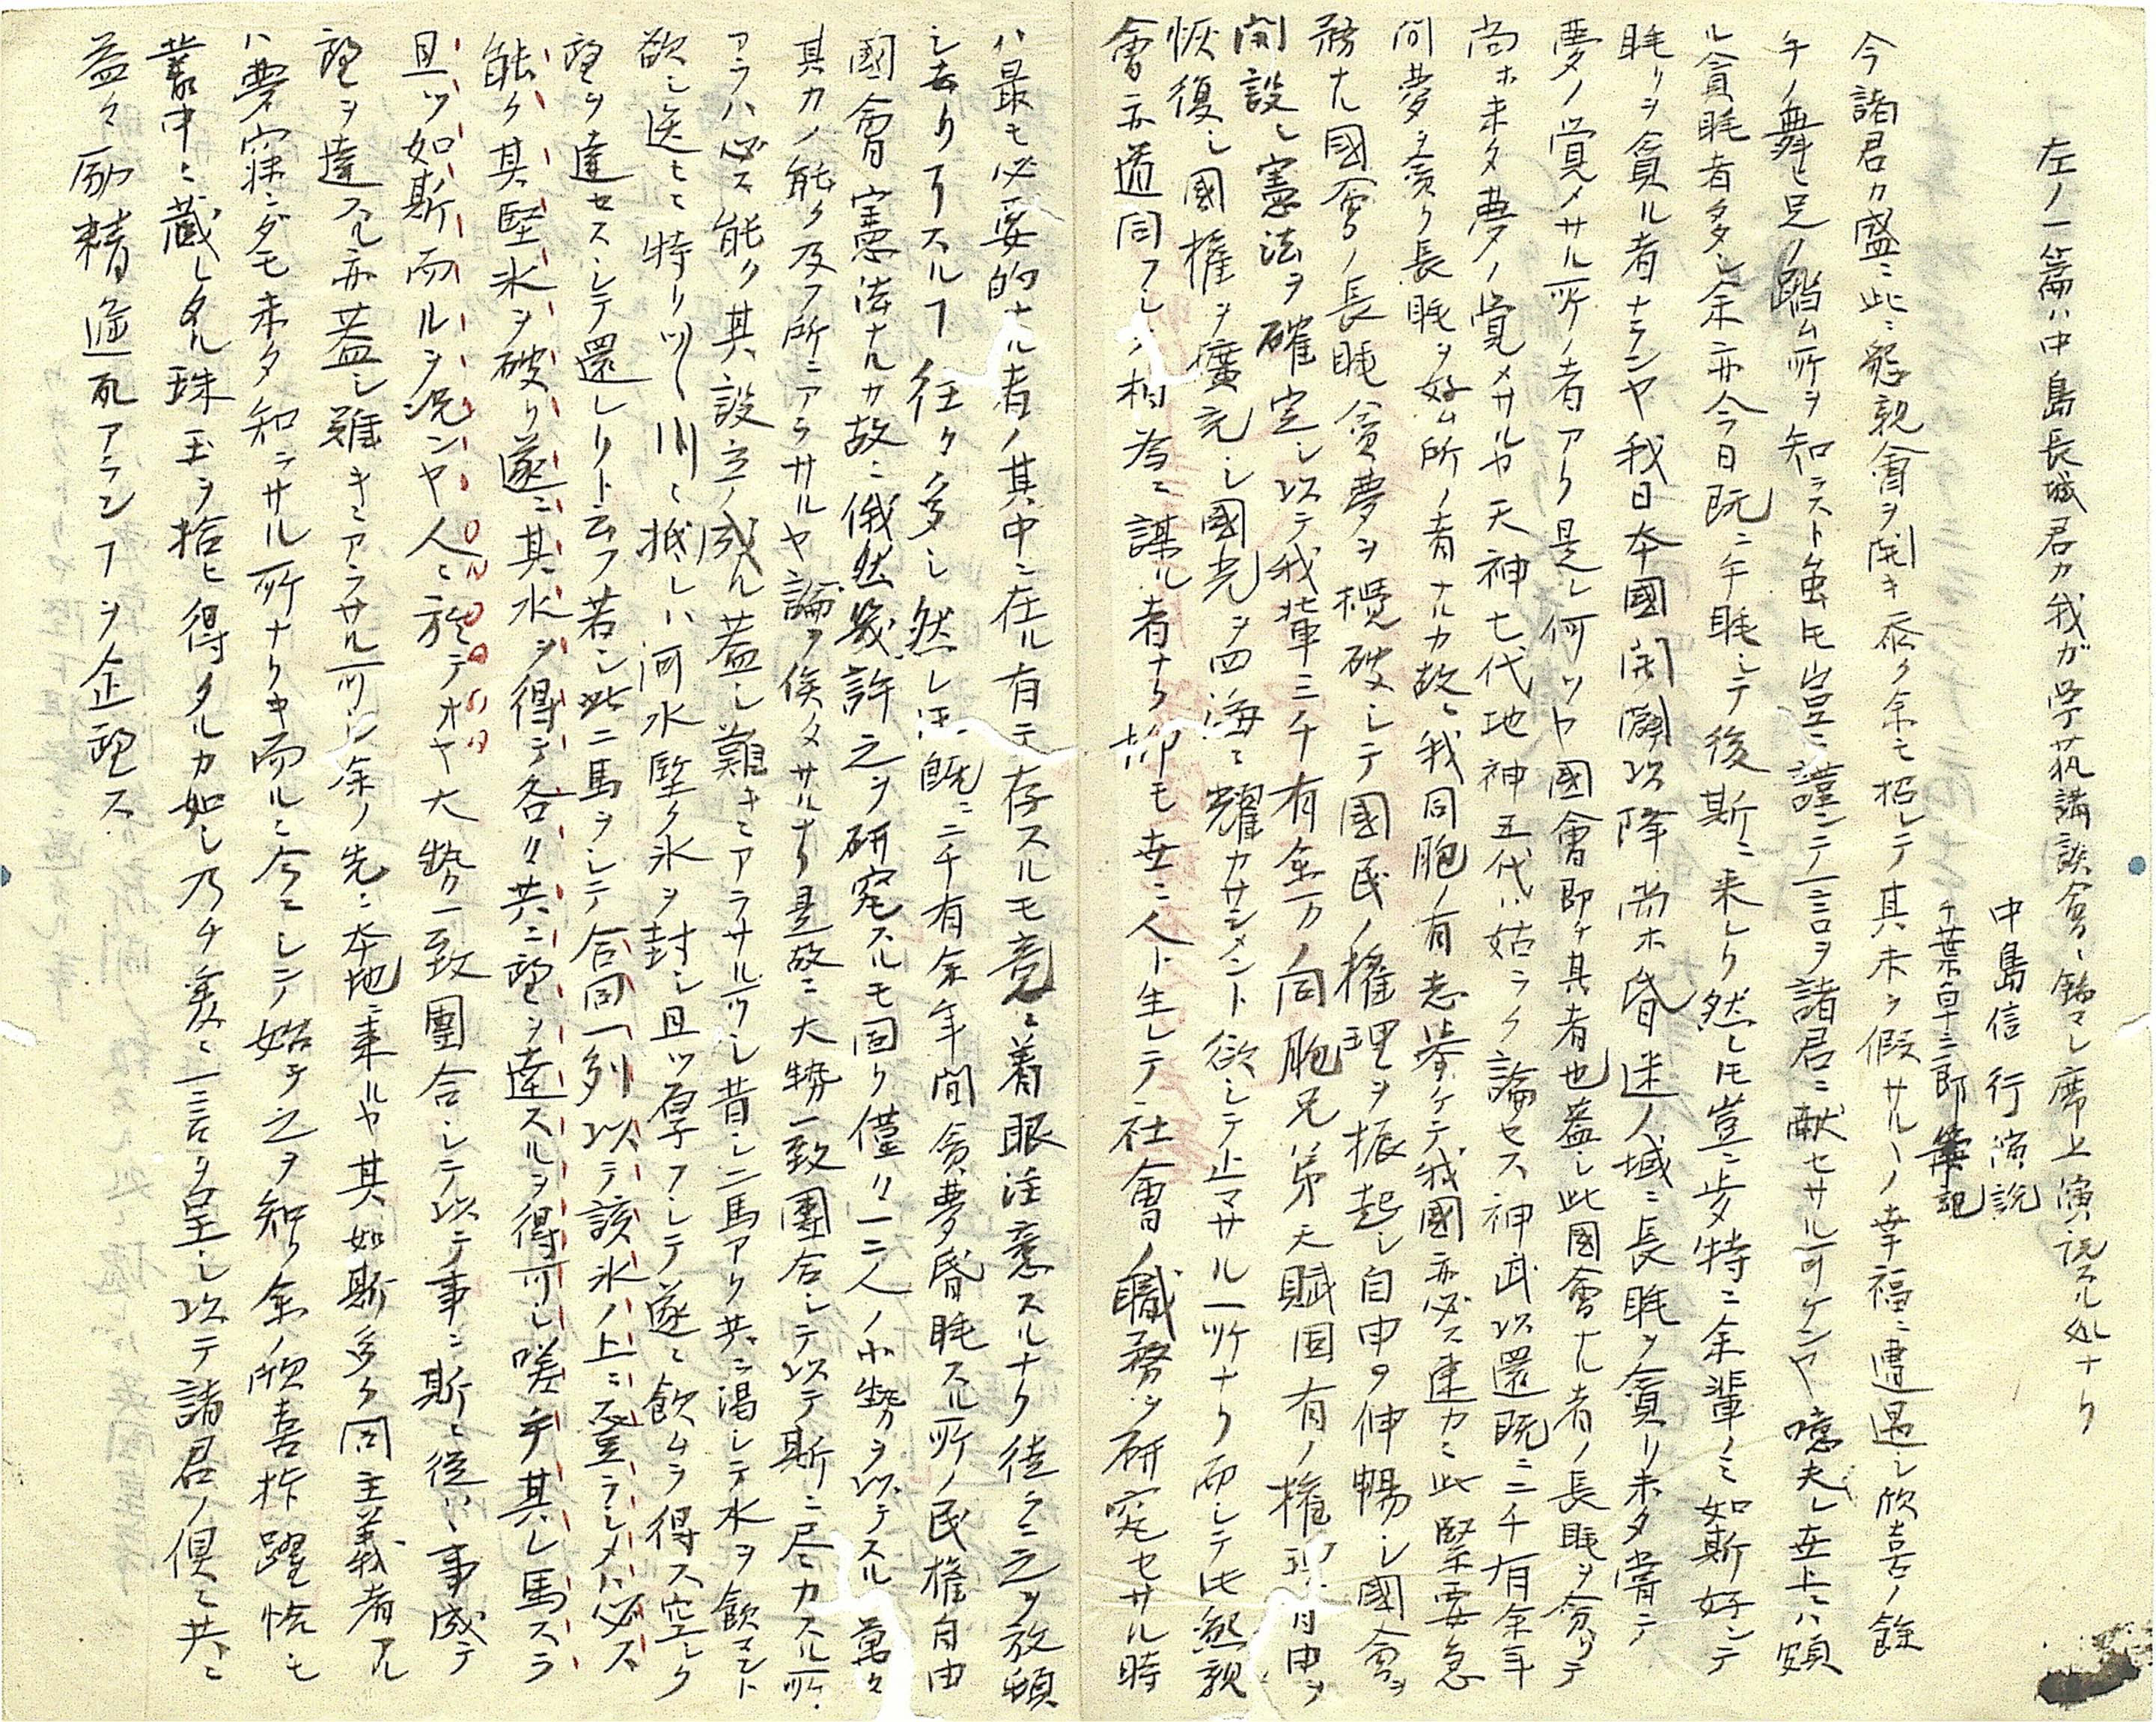 左ノ一篇ハ中島長城君カ我ガ学芸講談会ニ臨マレ席上演説スル処ナリ
中島信行演説
千葉卓三郎筆記
今諸君カ盛ニ此ニ懇親會ヲ開キ忝ク余モ招レテ其末ヲ假サルヽノ幸福ニ遭遇シ欣喜ノ餘
手ノ舞ヒ足ノ蹈ム所ヲ知ラスト虽𪜈豈ニ謹ンテ一言ヲ諸君ニ献セサル可ケンヤ噫夫レ世上ニハ頗
ル貪眠者多シ余亦今日既ニ午眠シテ後斯ニ来レリ然レ𪜈豈ニ歩特ニ余輩ノミ如斯好ンテ
眠リヲ貪ル者ナランヤ我日本國開闢以降尚ホ昏迷ノ域ニ長眠ヲ貪リ未タ嘗テ
夢ノ覚メサル所ノ者アリ是レ何ツヤ國會即チ其者也蓋シ此國會ナル者ノ長眠ヲ貪リテ
尚ホ未タ夢ノ覚メサルヤ天神七代地神五代ハ姑ラク論セス神武以還既ニ二千有余年
間夢ヲ貪リ長眠ヲ好ム所ノ者ナルカ故ニ我同胞ノ有志挙ケテ我國亦必ス速カニ此緊要急
務ナル國會ノ長眠貪夢ヲ攪破シテ國民ノ権理ヲ振起シ自由ヲ伸暢シ國會ヲ
開設シ憲法ヲ確定シ以テ我輩三千有余万ノ同胞兄弟天賦固有ノ権理自由ヲ
恢復シ國権ヲ擴充シ國光ヲ四海ニ耀カサシメント欲シテ止マサル所ナリ而シテ此懇親
會亦道同フシ相為ニ謀ル者ナリ抑モ世ニ人ト生レテ社會ノ職務ヲ研究セサル時
ハ最モ必要的ナル者ノ其中ニ在ル有テ存スルモ竟ニ着眼注意スルナク徒ラニ之ヲ放頓
シ去リ了スルヿ往々多シ然レ𪜈既ニ二千有余年間貪夢昏眠スル所ノ民権自由
國會憲法ナルカ故ニ俄然幾許之ヲ研究スルモ固ク僅々一二人ノ小勢ヲ以テスル萬々
其力ノ能ク及フ所ニアラサルヤ論ヲ俟タサルナリ是故ニ大勢一致團合シテ以テ斯ニ尽力スル所
アラハ必ス能ク其設立ノ成ル蓋シ難キニアラサル可シ昔シ二馬アリ共ニ渇シテ水ヲ飲マント
欲シ 特リ 川ニ抵レハ河水堅ク氷ヲ封シ且ツ厚フシテ遂ニ飲ムヲ得ス空シク
望ヲ達セスシテ還レリト云フ若シ此二馬ヲシテ合同一列以テ該氷ノ上ニ登ラシメハ必ス
能ク其堅氷ヲ破リ遂ニ其水ヲ得テ各々共ニ望ヲ達スルヲ得可シ嗟乎其レ馬スラ
且ツ如斯而ルヲ況ンヤ人ニ於テオヤ大勢一致團合シテ以テ事ニ斯ニ従ハヽ事成テ
望ヲ達スル亦蓋シ難キニアラサル可シ余ノ先ニ本地ニ来ルヤ其如斯多ク同主義者アル
ハ夢寐ニダモ未タ知ラサル所ナリキ而ルニ今ニシテ始テ之ヲ知リ余ノ欣喜抃躍恰モ
叢中ニ蔵レタル珠玉ヲ拾ヒ得タルカ如シ乃チ爰ニ一言ヲ呈シ以テ諸君ノ倶ニ共ニ
益々励精 アランヿヲ企望ス